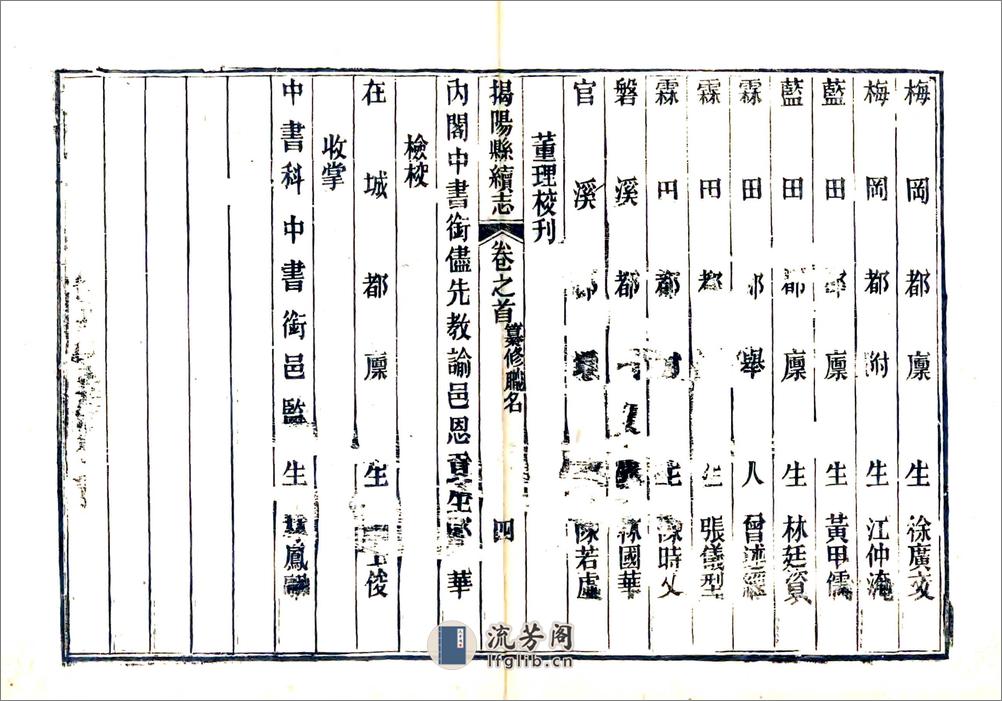 梅岡都廩生徐廣交
梅岡都附生江仲淹
藍田都廩生黃甲儒
藍田都廩生林廷資
霖田都舉人曾述經
霖田都生張儀型
霖田都生陳時文
磐溪都國華
官溪都陳若虛
董理校刊
揭陽縣續志 卷之首 纂修職名 四
內閣中書銜儘先教諭邑恩貢生 華
檢校
在城都廩生俊
收掌
中書科中書銜邑監生鳳
流芳阁
lfglib.cn